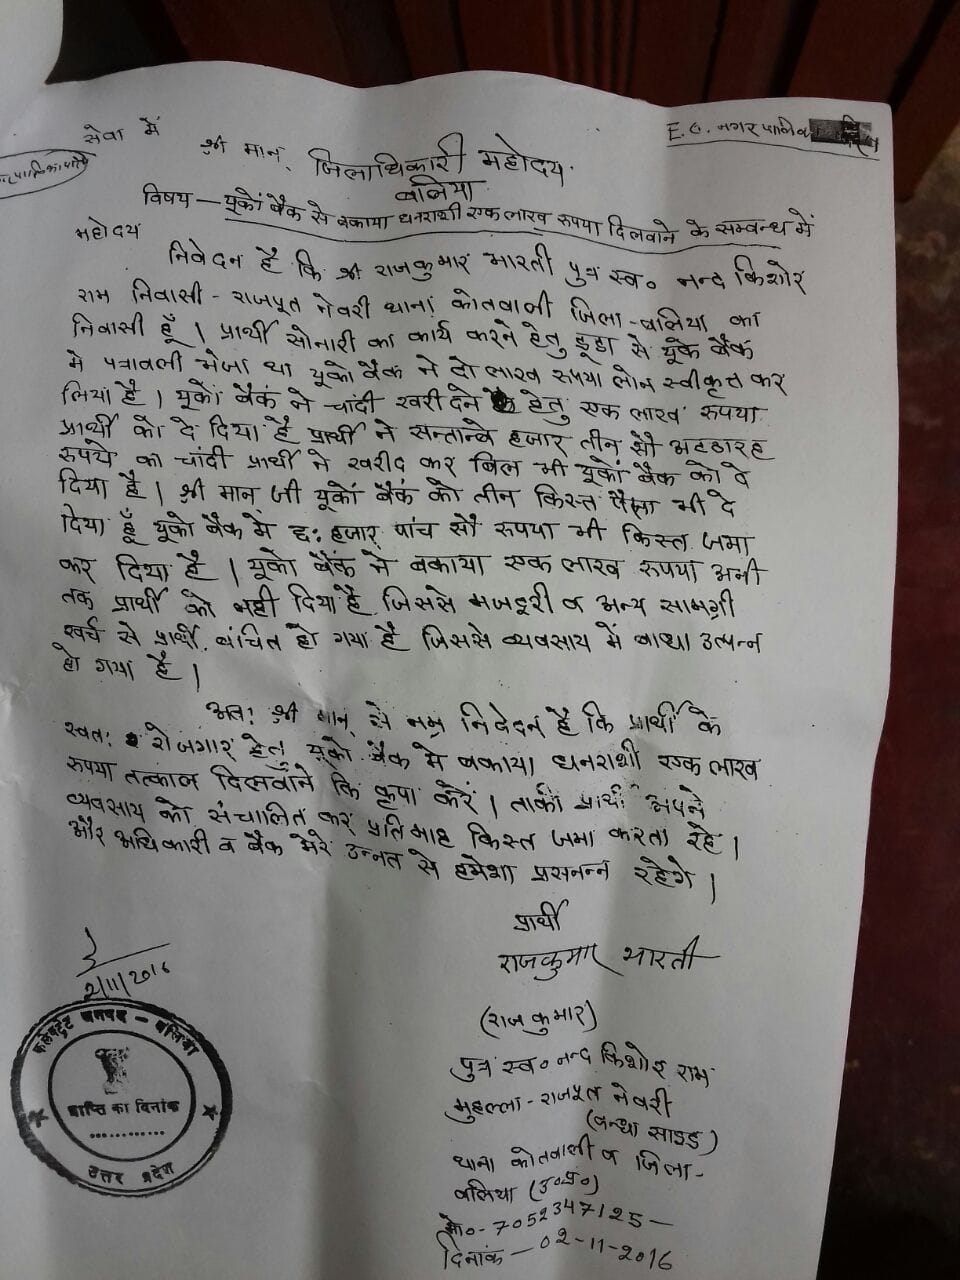 E.O. नगर पालिका
सेवा में
श्री मान् जिलाधिकारी महोदय
बलिया
विषय — यूकों बैंक से बकाया धनराशी एक लाख रुपया दिलवाने के सम्बन्ध में
महोदय
निवेदन है कि श्री राजकुमार भारती पुत्र स्व० नन्द किशोर
राम निवासी - राजपूत नेवरी थाना कोतवाली जिला - बलिया का
निवासी हूँ । प्रार्थी सोनारी का कार्य करने हेतु डूडा से यूके बैंक
मे पत्रावली भेजा था यूको बैंक ने दो लाख रुपया लोन स्वीकृत कर
लिया है । यूकों बैंक ने चांदी खरीदने हेतु एक लाख रुपया
प्रार्थी को दे दिया है प्रार्थी ने सन्तान्वे हजार तीन सौ अटठारह
रुपये का चांदी प्रार्थी ने खरीद कर बिल भी यूकों बैंक को दे
दिया है । श्री मान् जी यूकों बैंक को तीन किस्त पैसा भी दे
दिया हूँ यूको बैंक मे छ: हजार पांच सौ रुपया भी किस्त जमा
कर दिया है । यूको बैंक ने बकाया एक लाख रुपया अभी
तक प्रार्थी को नही दिया है जिससे मजदूरी व अन्य सामग्री
खर्च से प्रार्थी वंचित हो गया है जिससे व्यवसाय में बाधा उत्पन्न
हो गया है ।
अत: श्री मान् से नम्र निवेदन है कि प्रार्थी के
स्वत: रोजगार हेतु यूको बैंक मे बकाया धनराशी एक लाख
रुपया तत्काल दिलवाने कि कृपा करें । ताकी प्रार्थी अपने
व्यवसाय को संचालित कर प्रतिमाह किस्त जमा करता रहे ।
और अधिकारी व बैंक मेरे उन्नत से हमेशा प्रसनन्न रहेगे ।
प्रार्थी
राजकुमार भारती
(राज कुमार)
पुत्र स्व० नन्द किशोर राम
मुहल्ला - राजपूत नेवरी
(बन्धा साइड)
थाना कोतवाली व जिला -
बलिया (उ०प्र०)
मो० - 7052347125 —
दिनांक — 02-11-2016
2/11/2016
कलेक्ट्रेट जनपद - बलिया
प्राप्ति का दिनांक
..........
उत्तर प्रदेश